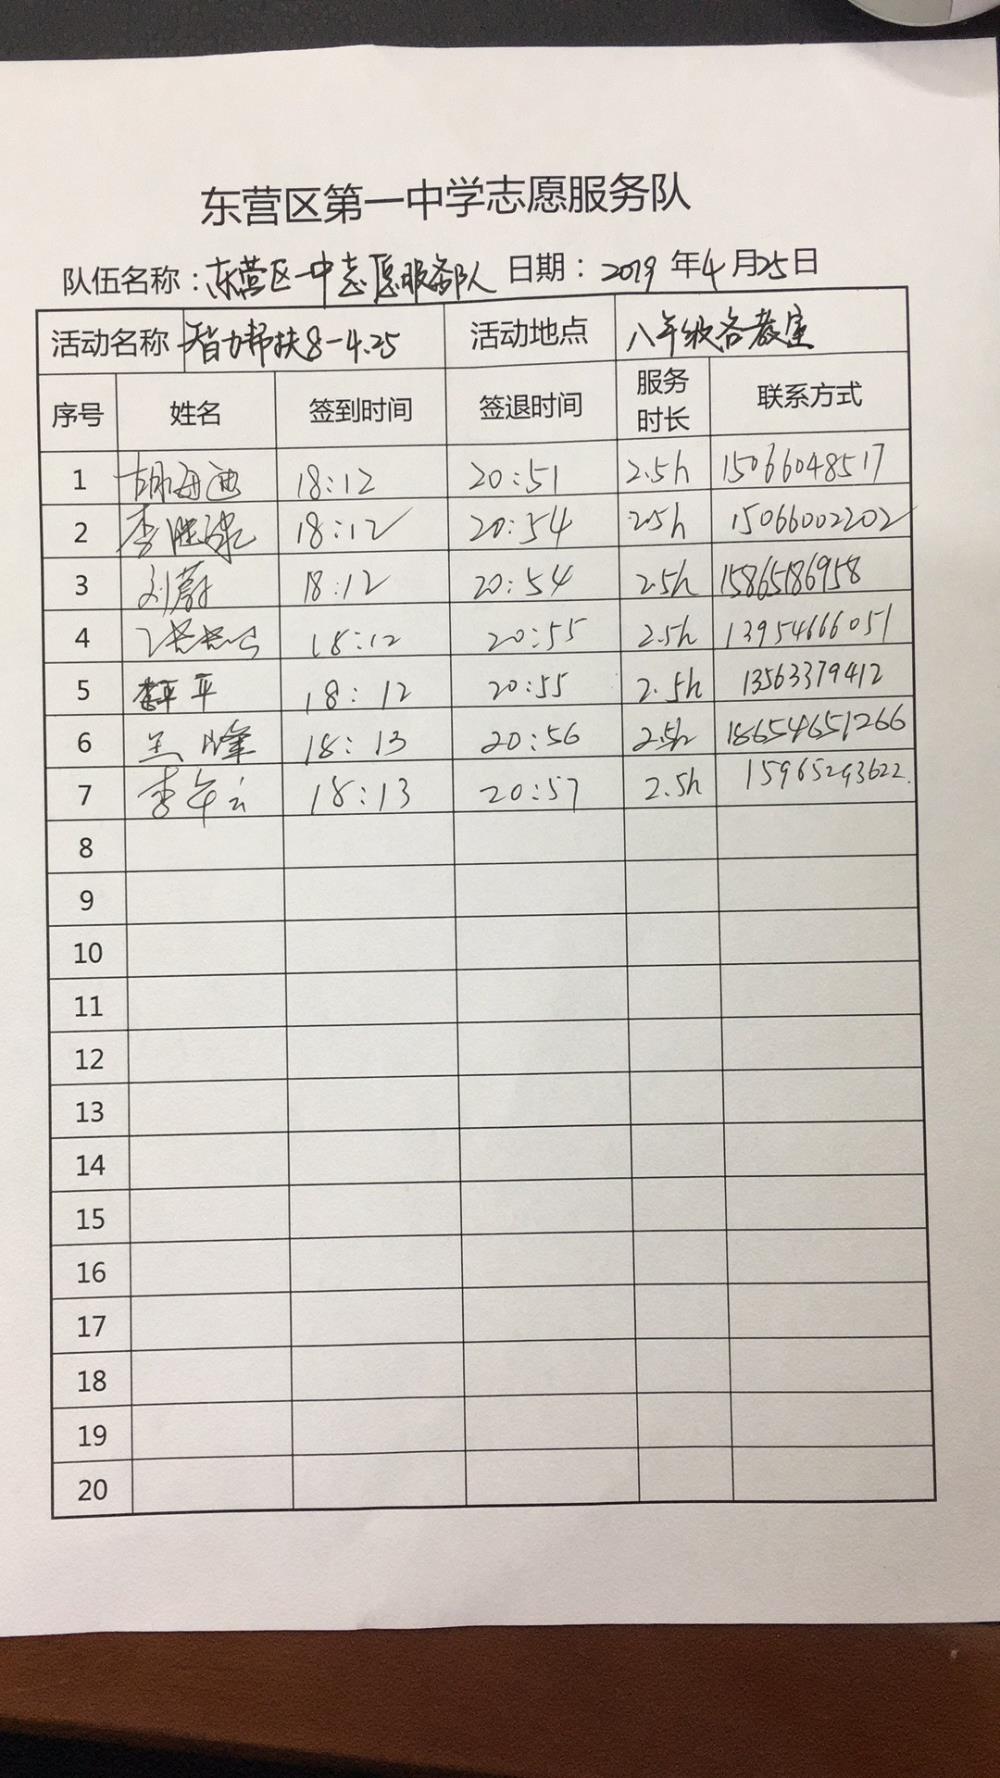 东营区第一中学志愿服务队
队伍名称：东营区一中志愿服务队 日期：2019年4月25日
活动名称 智力帮扶8-4.25 活动地点 八年级各教室
序号 姓名 签到时间 签退时间 服务时长 联系方式
1 胡海迪 18:12 20:51 2.5h 15066048517
2 李胜 18:12 20:54 2.5h 15066002202
3 刘蔚 18:12 20:54 2.5h 15865186958
4 18:12 20:55 2.5h 13954666051
5 李平平 18:12 20:55 2.5h 13563379412
6 王峰 18:13 20:56 2.5h 18654651266
7 李年云 18:13 20:57 2.5h 15965293622.
8
9
10
11
12
13
14
15
16
17
18
19
20